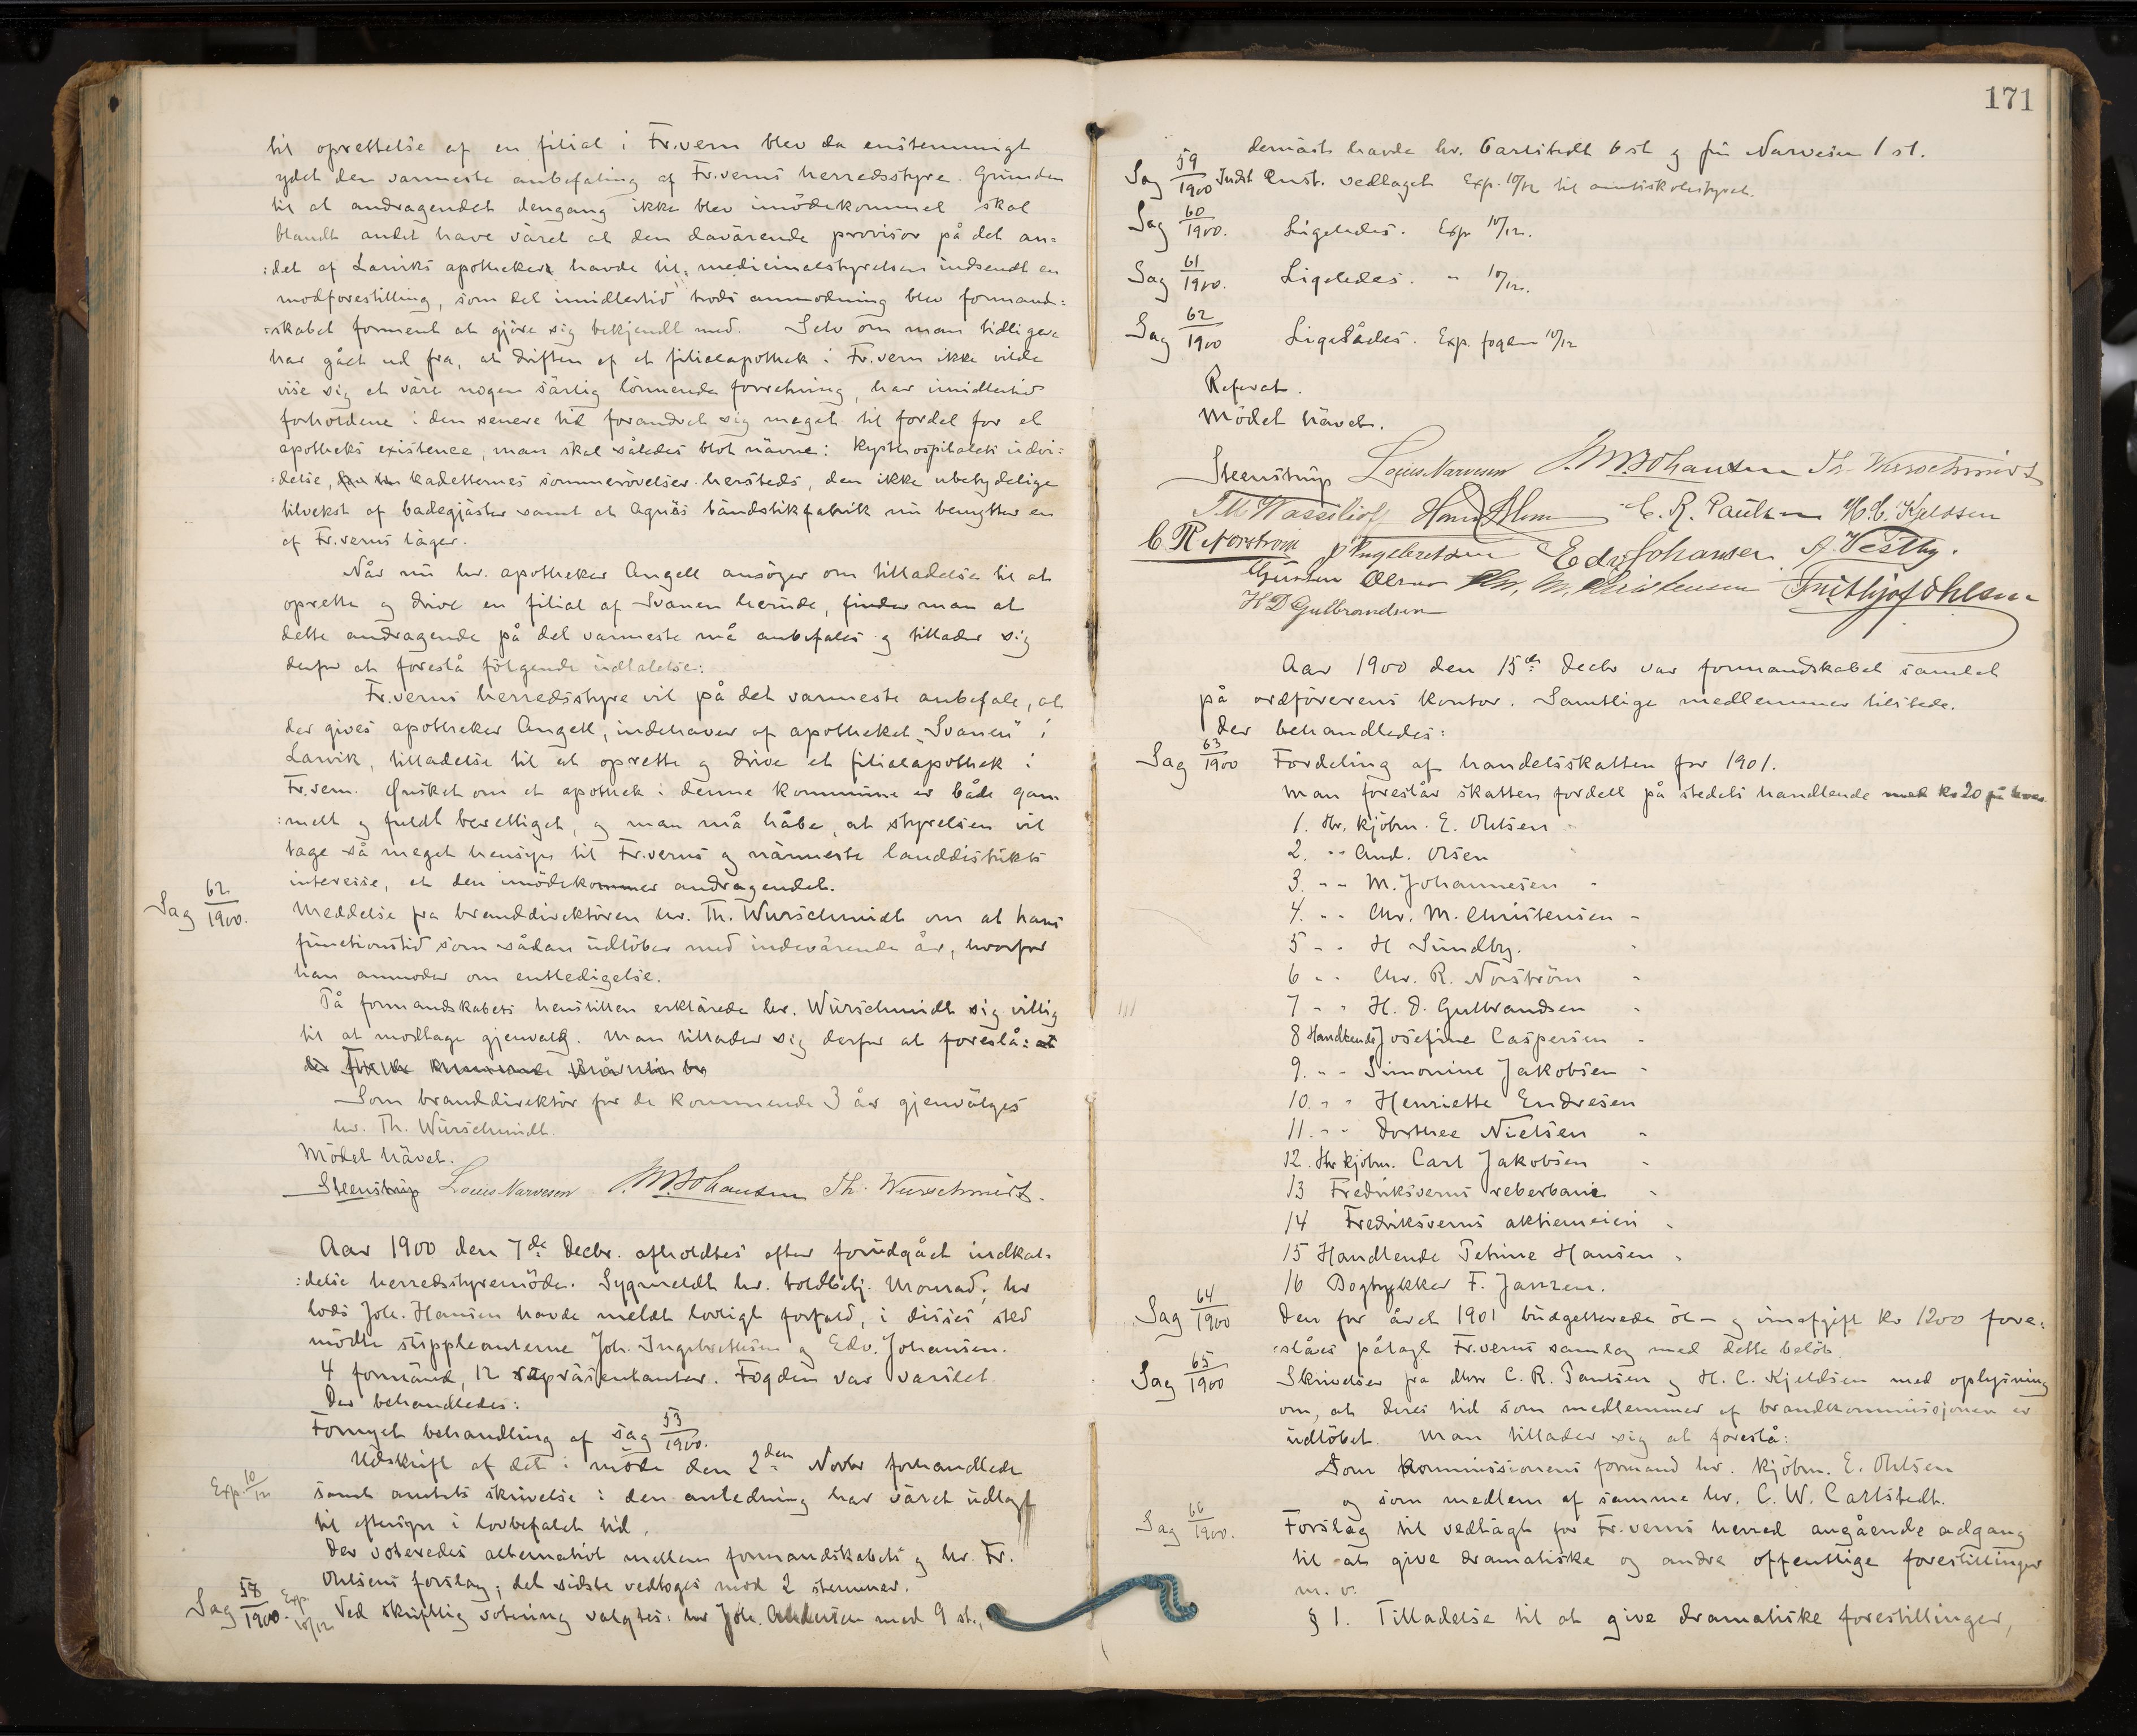 til oprettelse af en filial i Fr.vern blev da enstemmigt
ydet den varmeste anbefaling af Fr.verns herredsstyre. Grunden
til at andragendet dengang ikke blev imödekommet skal
blandt andet have været at den daværende provisor på det an=
:det af Larviks apotheker havde til medicinalstyrelsen indsendt en
modforestilling, som det imidlertid trods anmodning blev formand=
=skabet forment at gjöre sig bekjendt med. Selv om man tidligere
har gået ud fra, at driften af et filialapothek i Fr.vern ikke vilde
vise sig at være nogen særlig lönnende forretning, har imidlertid
forholdene i den senere tid forandret sig meget til fordel for et
apotheks existence, man skal således blot nævne: Kysthospitalets udvi=
:delse, kadetternes sommerövelser hersteds, den ikke ubetydelige
tilvekst af badegjæster samt at Agnäs tändstikfabrik nu benytter en
af Fr.verns läger.
Når nu hr. apotheker Angell ansöger om tilladelse til at
oprette og drive en filial af Svanen herude, finder man at
dette andragende på det varmeste må anbefales og tillader sig
derfor at foreslå fölgende udtalelse:
Fr.verns herredsstyre vil på det varmeste anbefale, at
der gives apotheker Angell, indehaver af apotheket "Svanen" i
Larvik, tilladelse til at oprette og drive et filialapothek i
Fr.vern. Ønsket om et apothek i denne kommune er både gam
:melt og fuldt berettiget, og man må håbe, at styrelsen vil
tage så meget hensyn til Fr.verns og närmeste landdistrikts
interesse, at den imödekommer andragendet.
Sag 62/1900. Meddelse fra branddirektören hr. Th. Wurschmidt om at hans
functionstid som sådan udlöber med indeværende år, hvorfor
han anmoder om entledigelse.
På formandskabets henstillen erklärede hr. Würschmidt sig villig
til at modtage gjenvalg. Man tillader sig derfor at foreslå:
Som branddirektör for de kommende 3 år gjenvälges
hr. Th. Würschmidt.
Mödet hävet.
Steenstrup Louis Narvesen M. Johansen Th. Wurschmidt.
Aar 1900 den 7de Decbr. afholdtes efter forudgået indkal=
:delse herredsstyremöde. Sygmeldt hr. toldbetj. Monrad; hr
lods Joh. Hansen havde meldt lovligt forfald, i disses sted
mödte suppleanterne Joh. Ingebrettsen og Edv. Johansen.
4 formänd, 12 repräsentanter. Fogden var varslet
Der behandledes:
Fornyet behandling af sag 53/1900.
Udskrift af det i möde den 2den Novbr forhandlede
Exp. 10/12 samt amtets skrivelse i den anledning har väret udlagt
til eftersyn i lovbefalet tid.
Der voteredes alternativt mellem formandskabets og hr. Fr.
Ohlsens forslag; det sidste vedtoges mod 2 stemmer.
Sag 58/1900. Exp. 10/12 Ved skriftlig votering valgtes: hr Joh. Andersen med 9 st.,
171
demäst havde hr. Carlstedt 6 st og frü Narvesen 1 st.
Sag 59/1900 Indst enst. vedtaget Exp. 10/12 til amtsskolestyret.
Sag 60/1900. Ligeledes. Exp 10/12.
Sag 61/1900. Ligeledes. " 10/12.
Sag 62/1900 Ligeledes. Exp. fogden 10/12
Referat.
Mödet hävet.
Steenstrup Louis Narvesen M. Johansen Th. Wurschmidt
Wassilioff C. R. Paulsen H. C. Kjeldsen
C R Norström J Ingebretsen Edv Johansen A. Vestby.
Chr. M. Christensen Frithjof Ohlsen
H D Gulbrandsen
Aar 1900 den 15de Decbr var formandskabet samlet
på ordförerens kontor. Samtlige medlemmer tilstede.
Der behandledes:
Sag 63/1900 Fordeling af handelsskatten for 1901.
Man foreslår skatten fordelt på stedets handlende med kr 20 på hver
1. Hr. kjöbm. E. Ohlsen
2. " " And. Olsen "
3. " " M. Johannesen "
4. " " Chr. M. Christensen "
5 " " H Sundby. "
6 " " Chr. R. Norström "
7 " " H. D. Gulbrandsen "
8 Handlende Josefine Caspersen "
9. " " Simonine Jakobsen "
10. " " Henriette Endresen
11. " " Dorthee Nielsen "
12. Hr kjöbm. Carl Jakobsen "
13 Fredriksverns reberbane "
14 Fredriksverns aktiemeieri "
15 Handlende Petrine Hansen "
16 Bogtrykker F. Janzen.
Sag 64/1900 Den for året 1901 budgetterede öl- og vinafgift kr 1200 fore=
:slåes pålagt Fr.verns samlag med dette belöb.
Sag 65/1900 Skrivelser fra dhrr C. R. Paulsen og H. C. Kjeldsen med oplysning
om, at deres tid som medlemmer af brandkommissjonen er
udlöbet. Man tillader sig at foreslå:
Som kommissionens formand hr. kjöbm. E. Ohlsen
og som medlem af samme hr. C. W. Carlstedt.
Sag 66/1900. Forslag til vedtägt for Fr.verns herred angående adgang
til at give dramatiske og andre offentlige forestillinger
m. v.
§ 1. Tilladelse til at give dramatiske forestillinger,